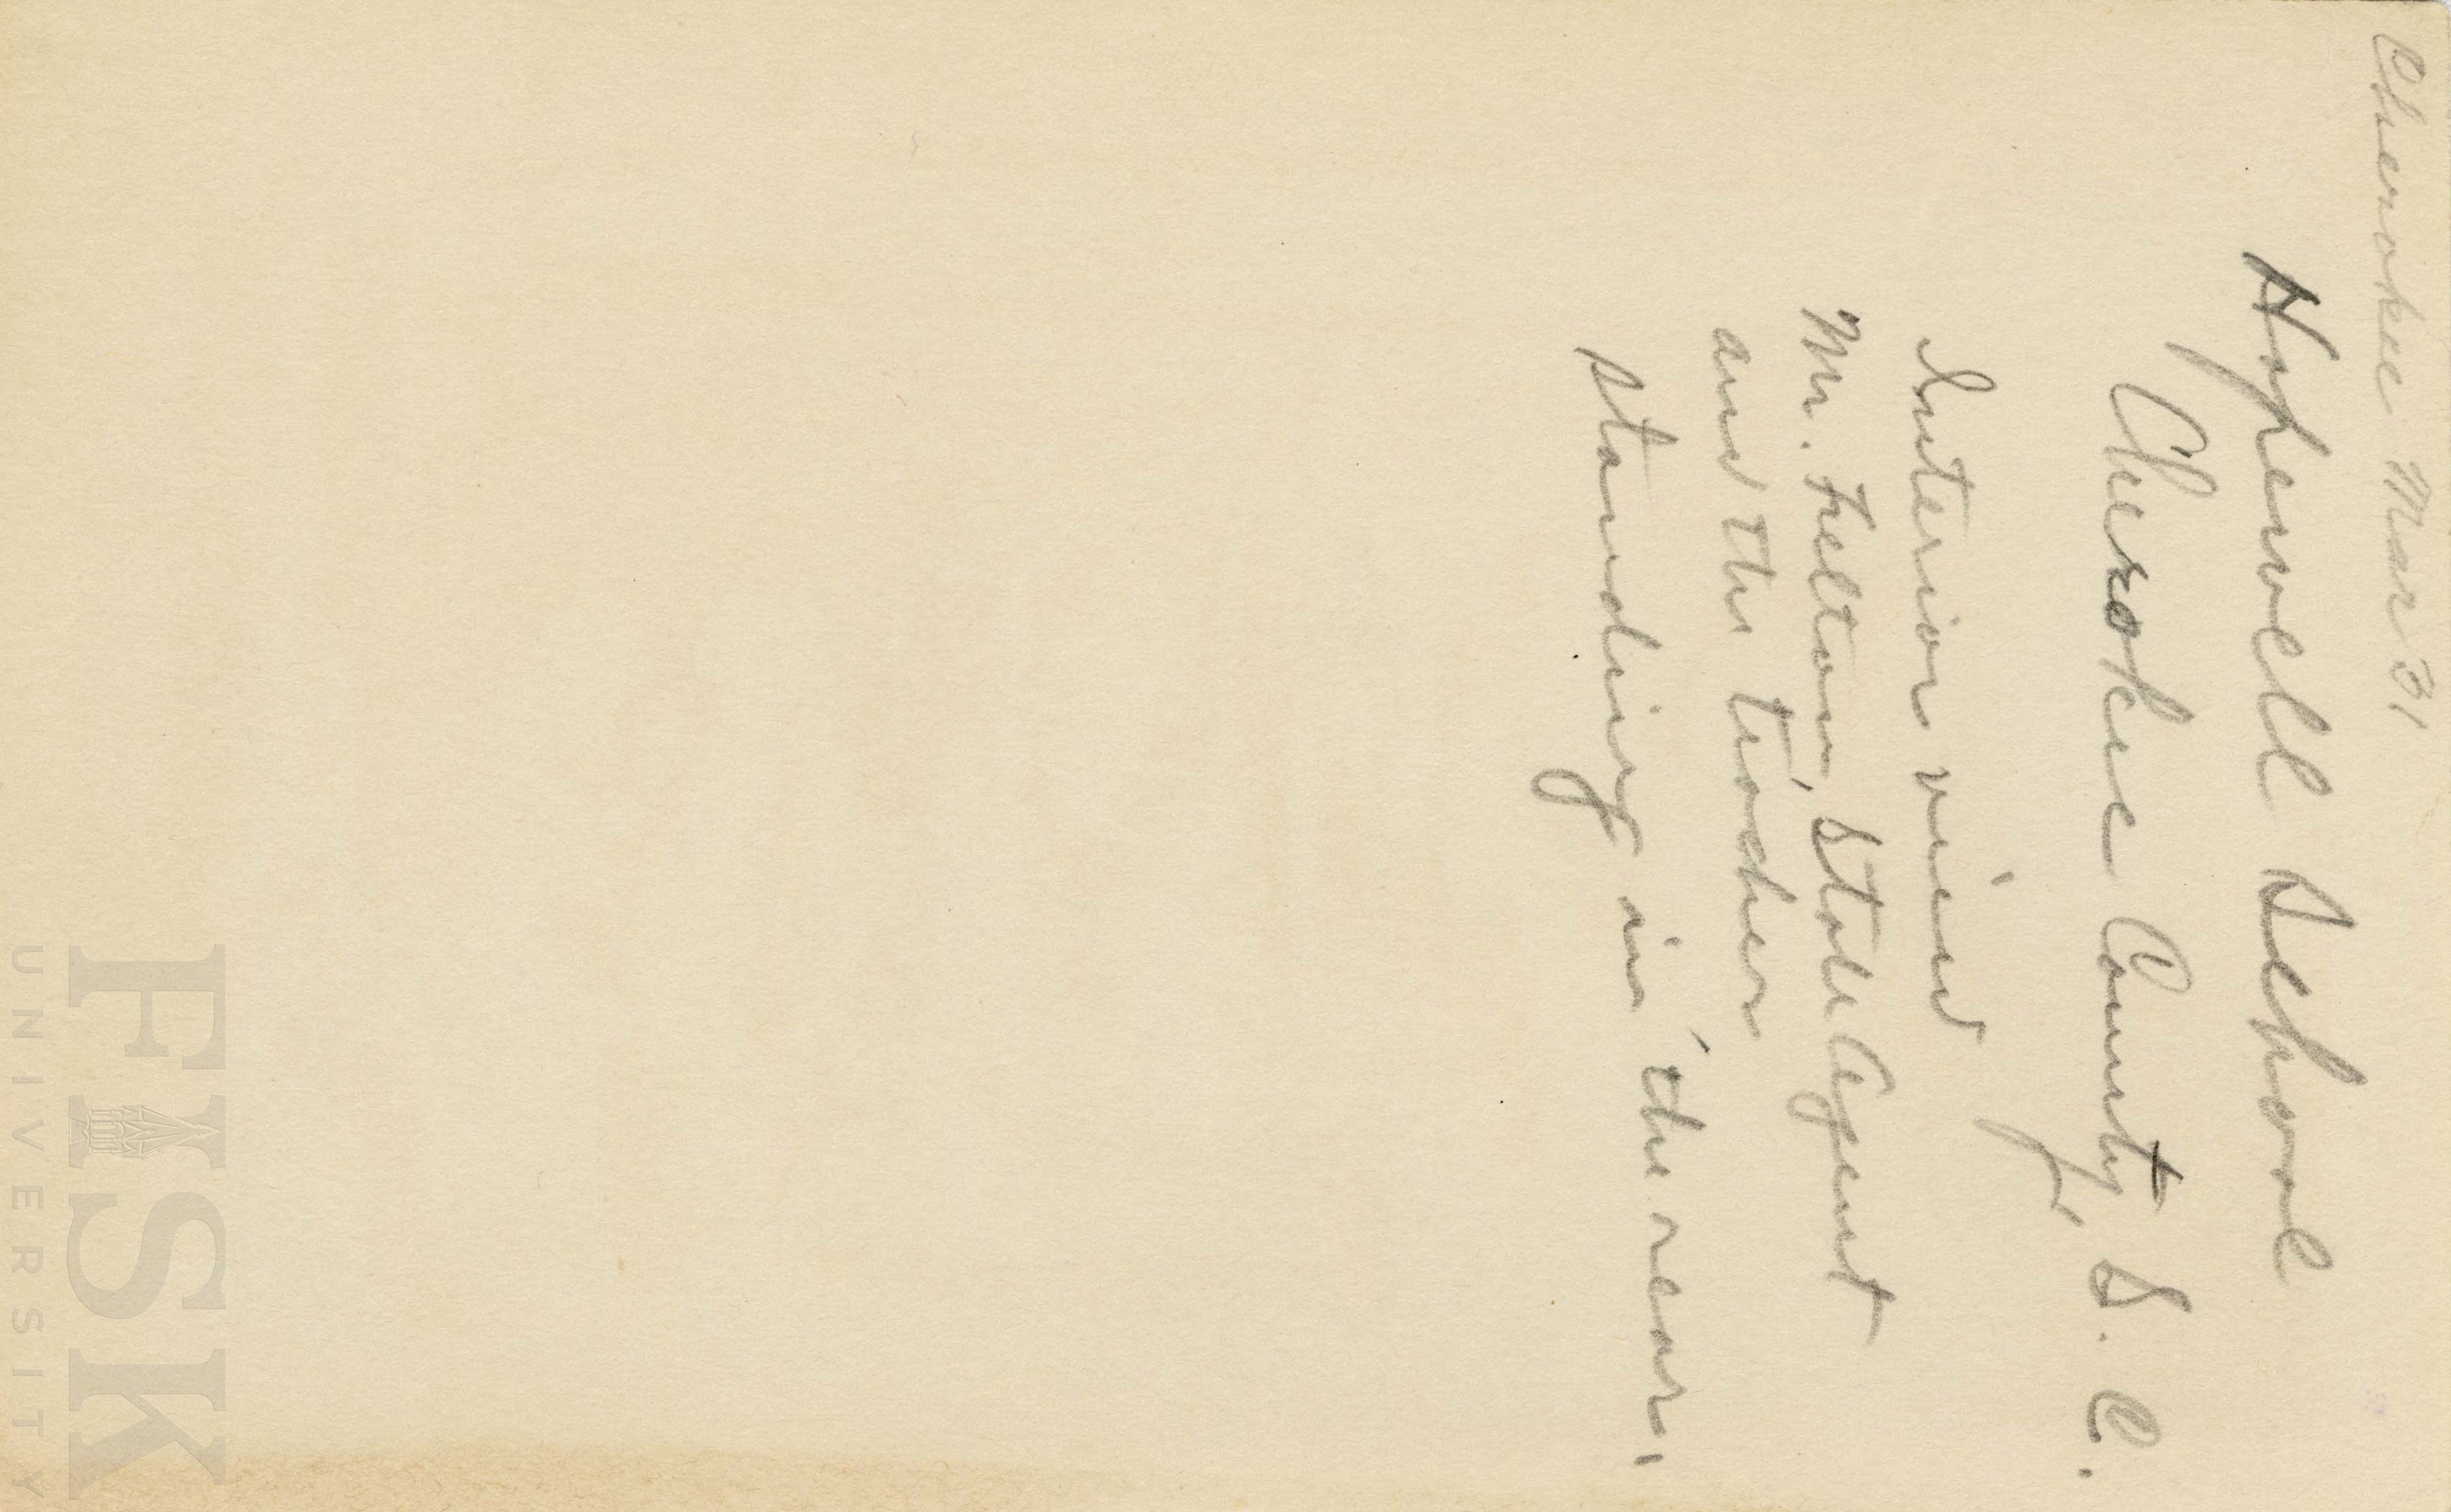 Cherokee Mar 31
Hopewell School
Cherokee County, S. C.
Interior view
Mr. Felton, State Agent
and the teacher
standing in the rear.
FISK
UNIVERSITY